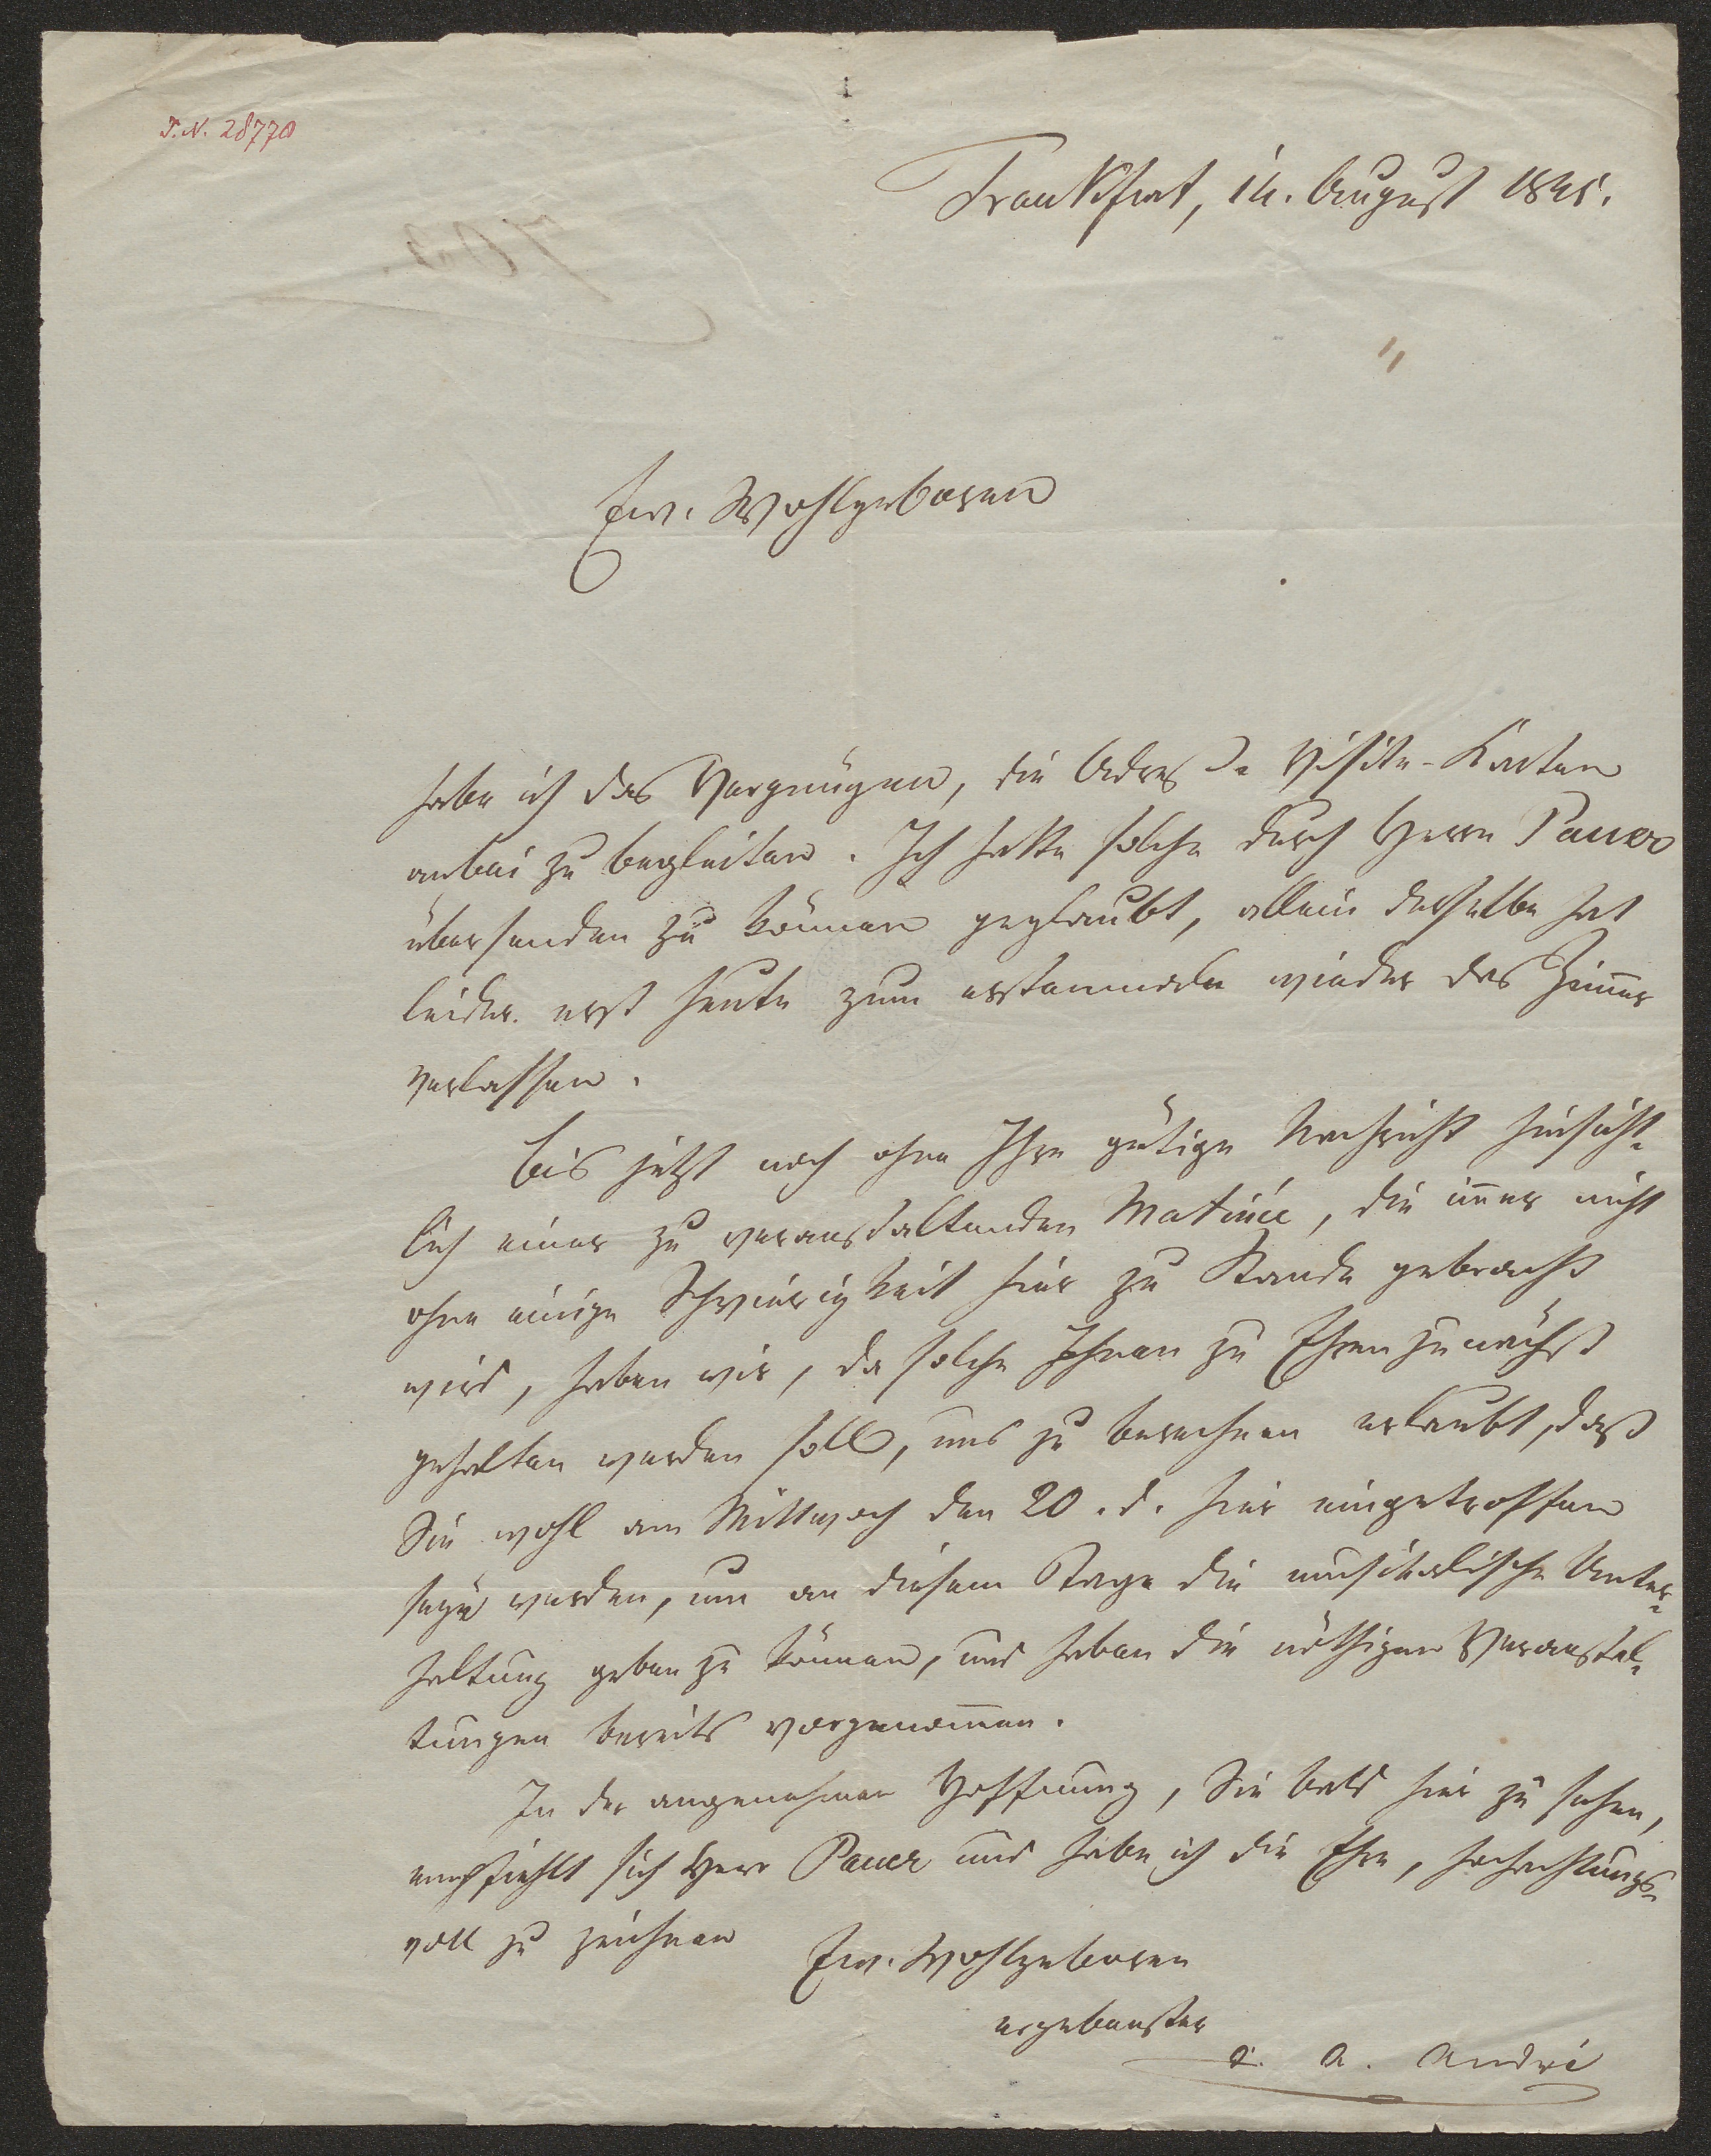 I.N. 28770
Frankfurt, 14. August 1845.
Ew. Wohlgeboren
habe ich das Vergnügen, die Adreß Visite-Karten
anbei zu begleiten. Ich hatte solche durch Herrn Pauer
übersenden zu können geglaubt, allein derselbe hat
leider erst heute zum erstenmale wieder das Zim̅er
verlassen.
Bis jetzt noch ohne Ihre gütige Nachricht hinsicht-
lich einer zu veranstaltenden Matinée, die im̅er nicht
ohne einige Schwierigkeit hier zu Stande gebracht
wird, haben wir, da solche Ihnen zu Ehren zunächst
gehalten werden soll, uns zu berechnen erlaubt, daß
Sie wohl am Mittwoch den 20. d. hier eingetroffen
seyn werden, um an diesem Tage die musikalische Unter-
haltung geben zu können, und haben die nöthigen Veranstal-
tungen bereits vorgenom̅en.
In der angenehmen Hoffnung, Sie bald hier zu sehen,
empfiehlt sich Herr Pauer und habe ich die Ehre, hochachtungs-
voll zu zeichnen
Ew. Wohlgeboren
ergebenster
A. André